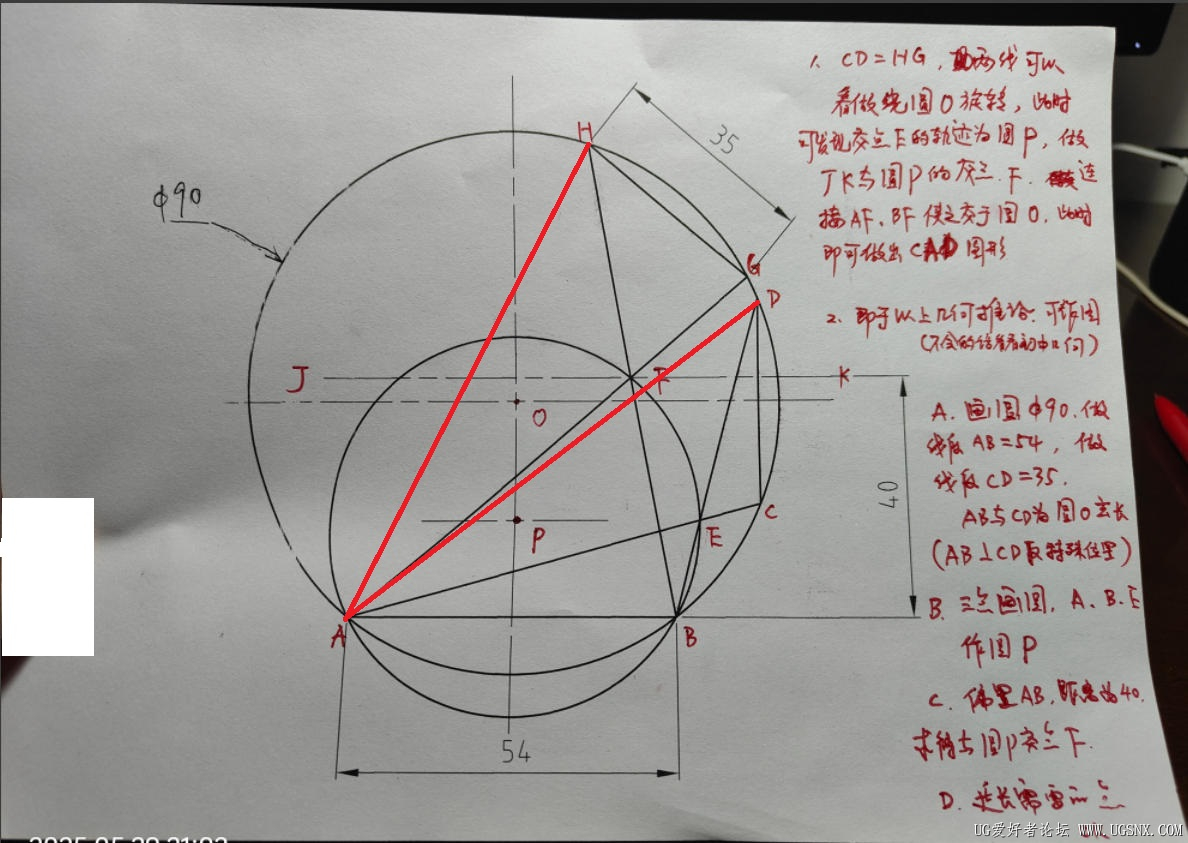 1、CD=HG，两线可以
看做绕圆O旋转，此时
可发现交点E的轨迹为圆P，做
JK与圆P的交点F.连
接AF、BF使之交于圆O.此时
即可做出 图形
2、即于以上几何推论.可作图
(不会的给看看初中几何)
A.画圆φ90.做
线段AB=54，做
线段CD=35.
AB与CD为圆O玄长
(AB⊥CD取特殊位置)
B.三点画圆，A、B、E
作圆P
C.偏置AB，距离为40.
求得与圆P交点F.
D.延长
φ90
H
35
G
D
J
F
K
O
40
C
P
E
A
B
54
UG爱好者论坛 WWW.UGSNX.COM